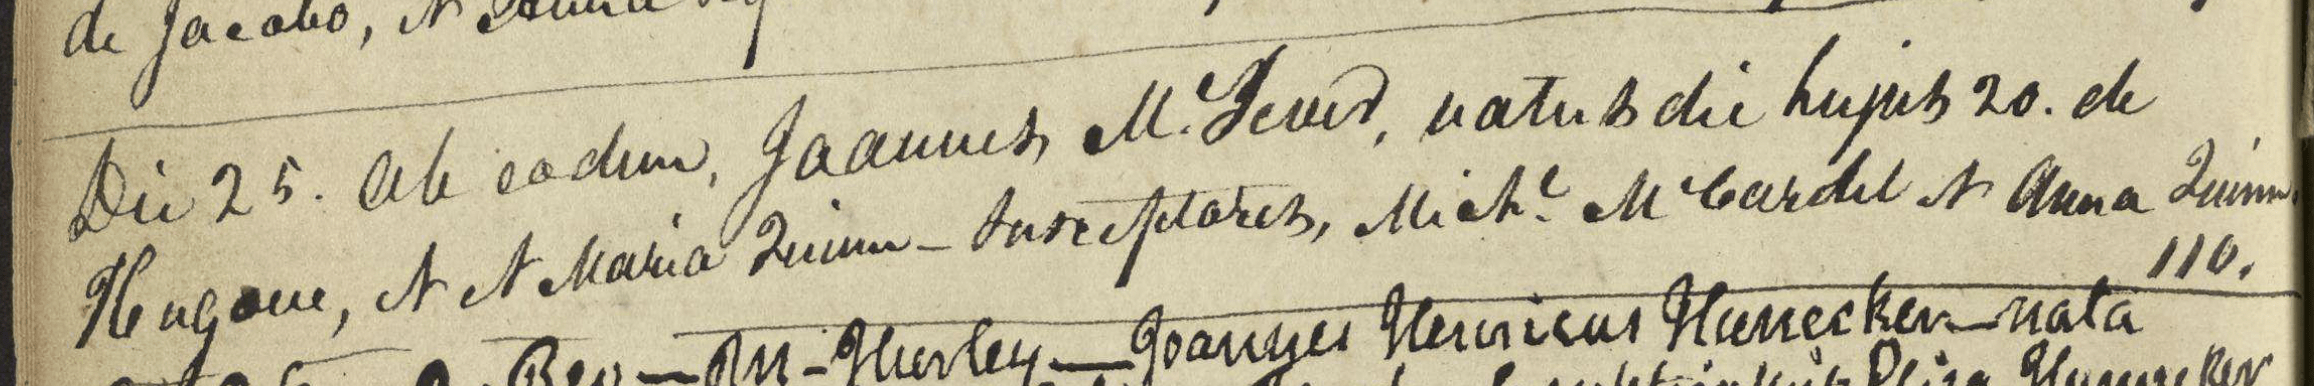 de Jacobo, et Anna
Die 25. Ab eodem, Joannes Mc. natus die hujus 20. de
Hugone, et et Maria Quinn - Susceptores, Michl. McCardel et Anna Quinn.
110.
Rev - M - Hurley - Joannes Henricus Hunecker - nata
Eliza Hunecker